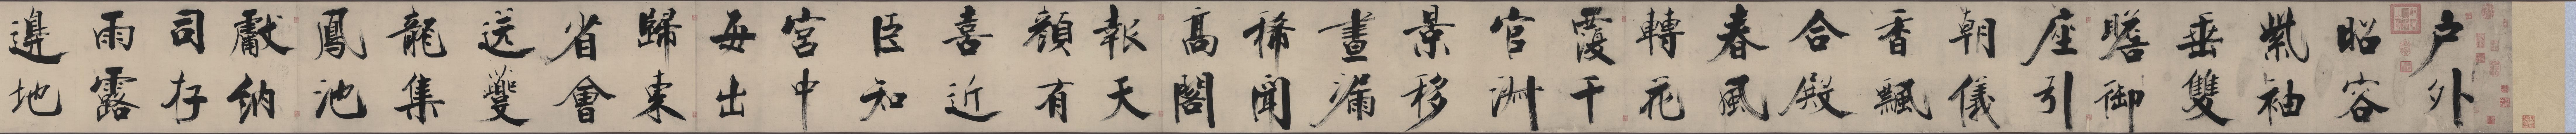 戶外
昭容
紫袖
垂雙
瞻御
座引
朝儀
香飄
合殿
春風
轉花
覆千
官淑
景移
晝漏
稀聞
高閣
報天
顏有
喜近
臣知
宮中
每出
歸東
省會
送夔
龍集
鳳池
獻納
司存
雨露
邊地